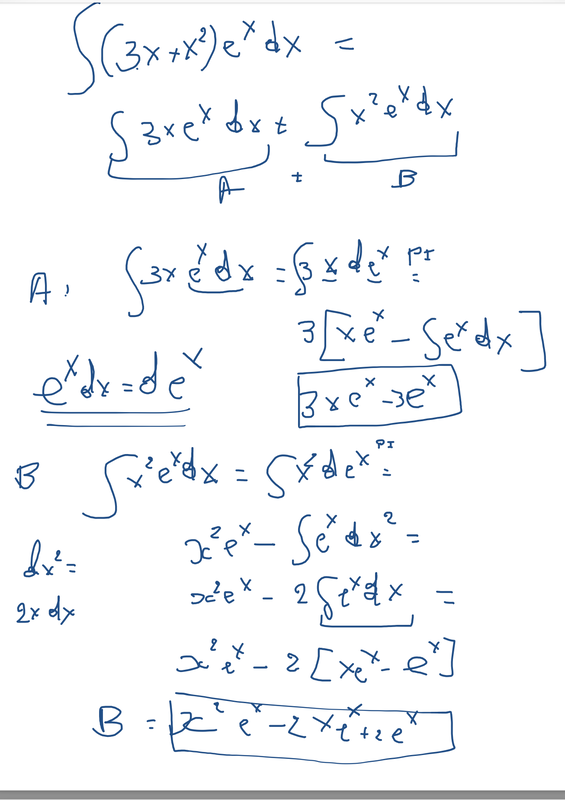 ∫(3x+x²)eˣdx =
∫3xeˣ dx + ∫x²eˣdx
A + B
A: ∫3x eˣdx = ∫3 x deˣ PI =
3[xeˣ - ∫eˣdx]
eˣdx = deˣ
3xeˣ - 3eˣ
B ∫x²eˣdx = ∫x²deˣ PI =
x²eˣ - ∫eˣ dx² =
dx² =
x²eˣ - 2∫eˣdx =
2x dx
x²eˣ - 2[xeˣ - eˣ]
B = x²eˣ - 2xeˣ + 2eˣ